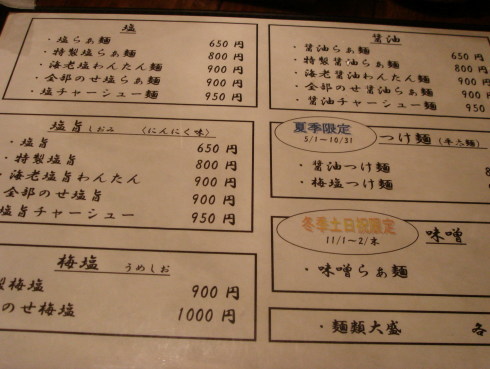 塩
・塩らぁ麺 650円
・特製塩らぁ麺 800円
・海老塩わんたん麺 900円
・全部のせ塩らぁ麺 900円
・塩チャーシュー麺 950円
塩旨 しおうみ 〈にんにく味〉
・塩旨 650円
・特製塩旨 800円
・海老塩旨わんたん 900円
全部のせ塩旨 900円
塩旨チャーシュー 950円
梅塩 うめしお
製梅塩 900円
のせ梅塩 1000円
醤油
・醤油らぁ麺 650円
・特製醤油らぁ麺 800
・海老醤油わんたん麺 900
・全部のせ醤油らぁ麺 900
・醤油チャーシュー麺 950
夏季限定
5/1~10/31
つけ麺
・醤油つけ麺 8
・梅塩つけ麺
冬季土日祝限定
11/1~2/末
味噌
・味噌らぁ麺
・麺類大盛 各